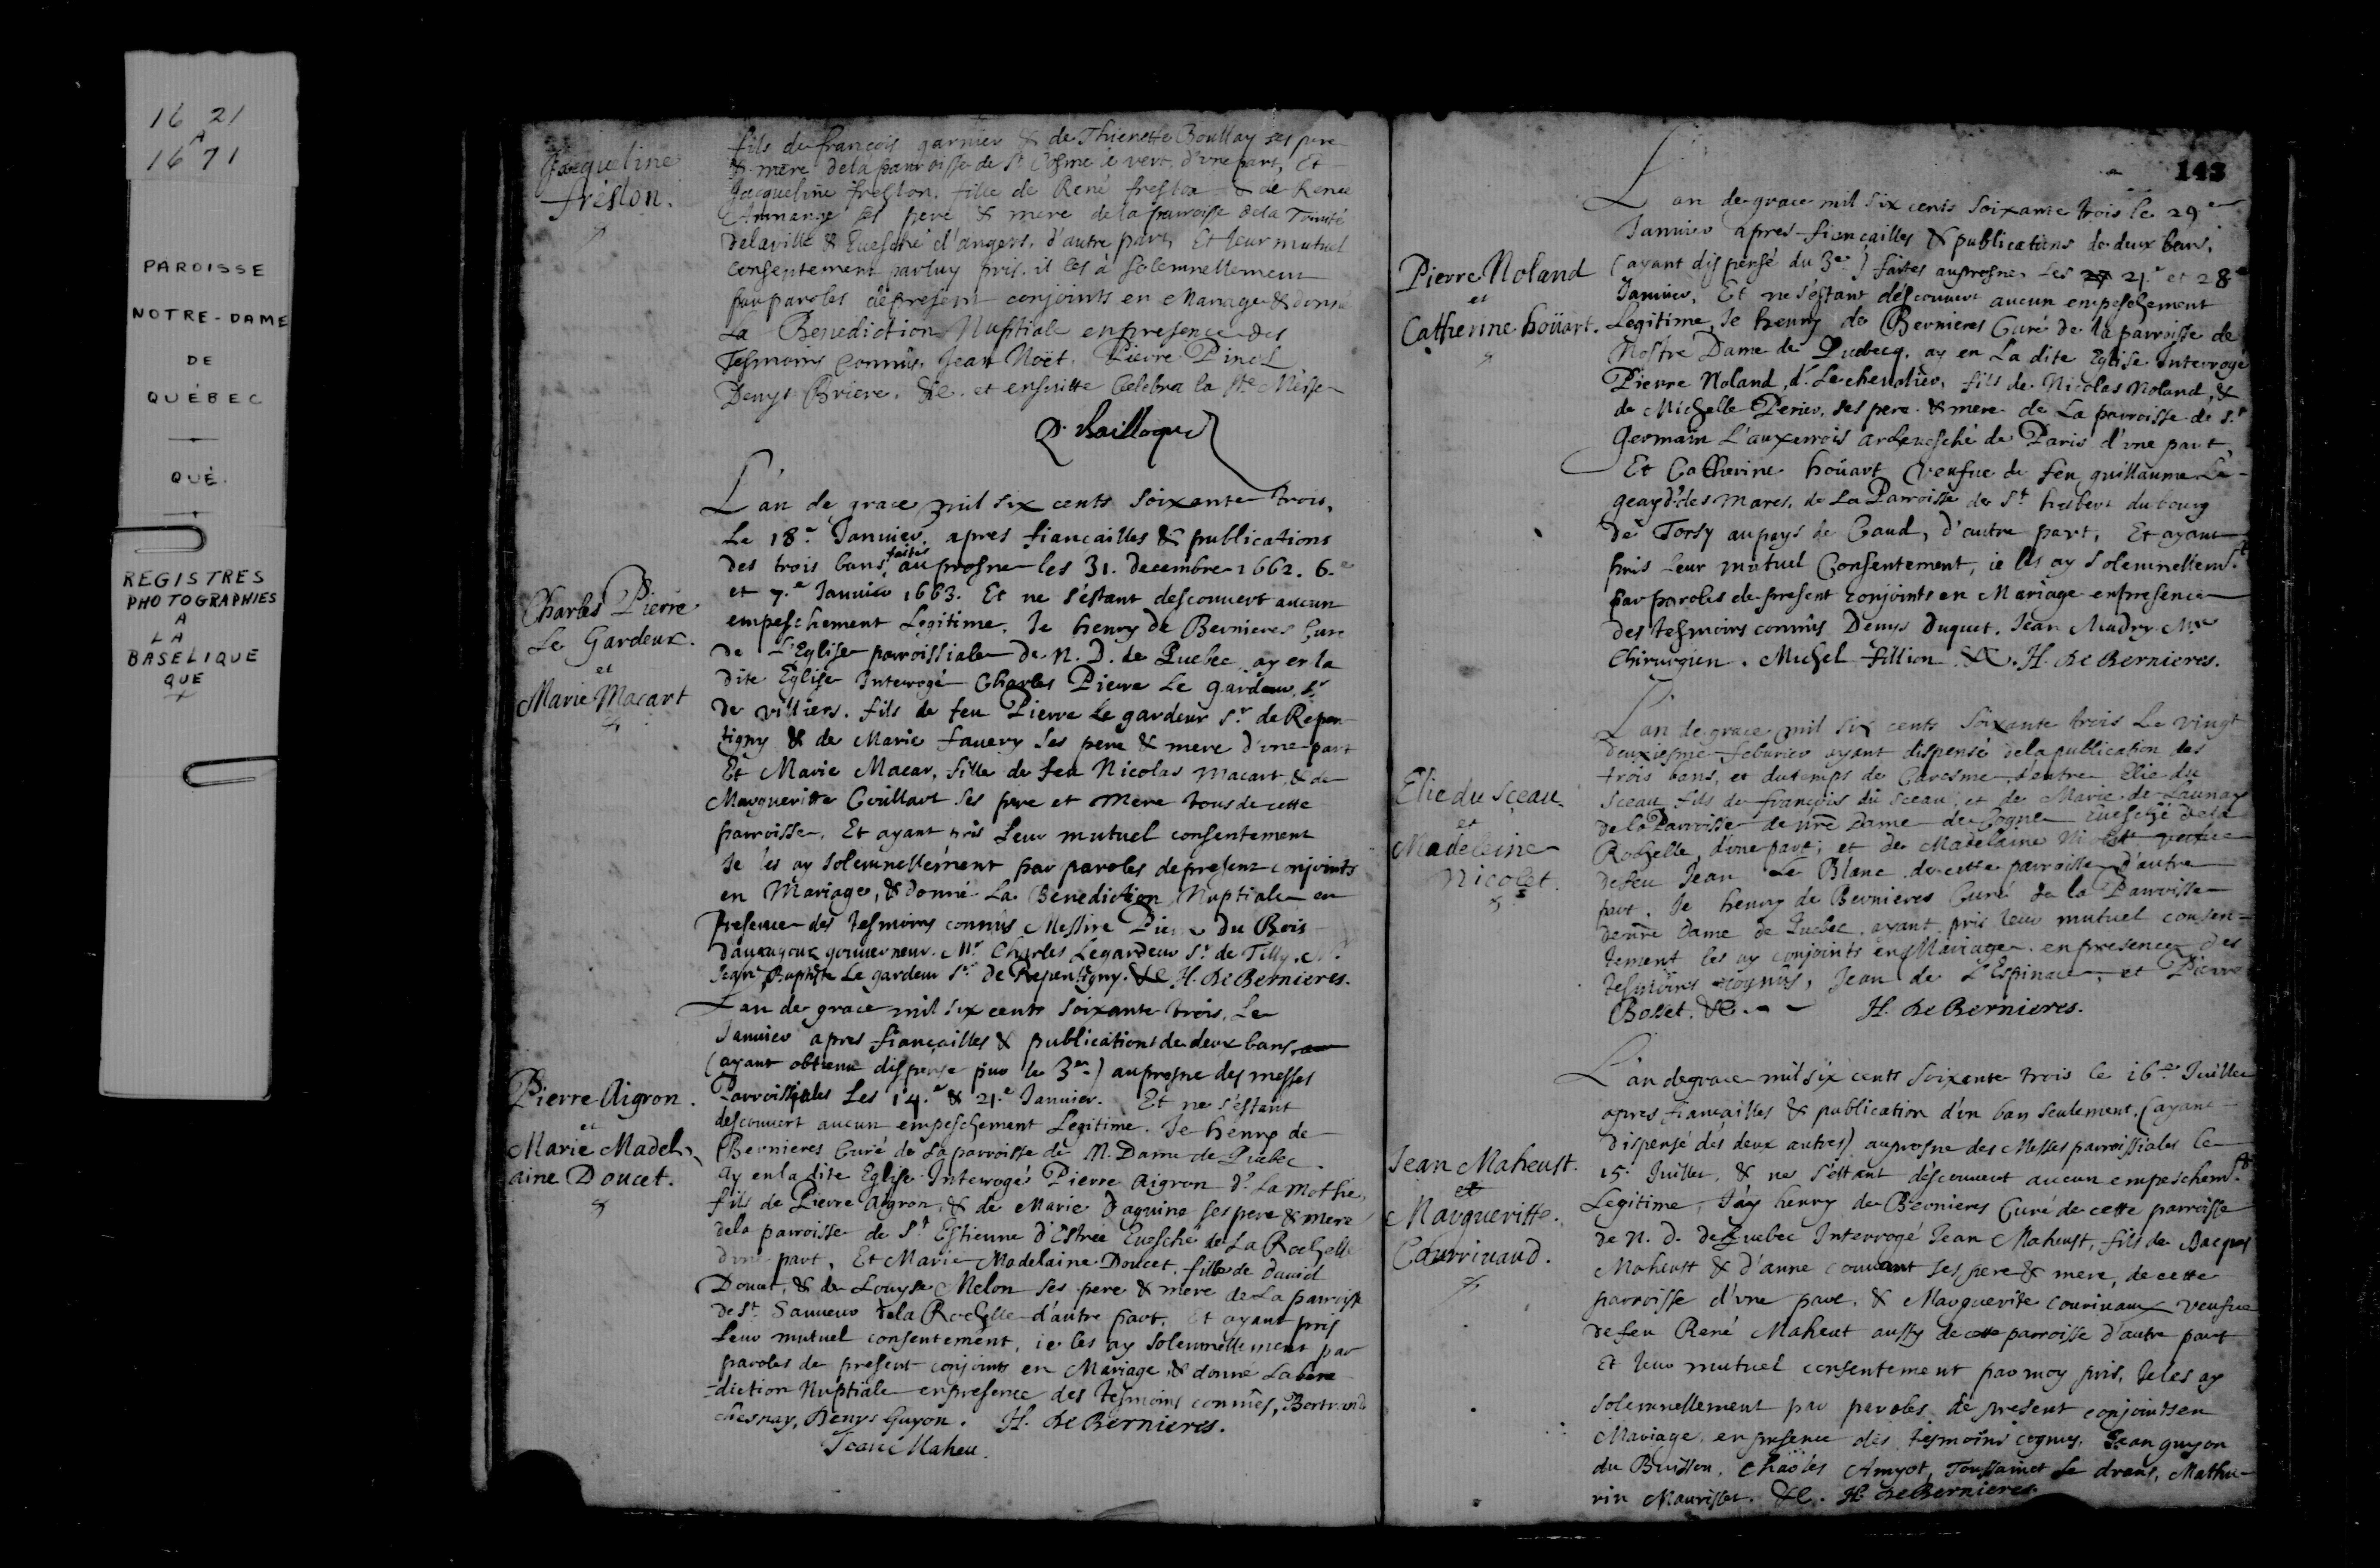 16 21
A
16 71
PAROISSE
NOTRE-DAME
DE
QUÉBEC
QUÉ.
REGISTRES
PHOTOGRAPHIES
A
LA
BASELIQUE
QUE
Jacqueline
fréslon.
fils de françois garnier & de Thienette Boullay ses pere
& mere dela parroisse de St Cosme le vert, d'vne part, Et
Jacqueline freslon, fille de René freslon & de Renée
ses pere & mere dela parroisse dela Trinité
dela ville & Euesché d'angers, d'autre part, Et leur mutuel
consentement par luy pris, il les à solemnellement
par paroles depresent conjoints en Mariage & donné
La Benediction Nuptiale enpresence des
Tesmoins connus, Jean Noët, Pierre Pinel
Denys Briere, &c. et ensuitte Celebra la Ste Messe
Charles Pierre
Le Gardeux.
et
Marie Macart
L'an de grace mil six cents soixante trois,
Le 18.e Januier, apres fiancailles & publications
des trois bans faites au prosne les 31. decembre 1662. 6.e
et 7.e Januier 1663. Et ne s'estant descouuert aucun
empeschement Legitime, Je henry de Bernieres Curé
de L'Eglise parroissiale de N. D. de Quebec, ay en la
dite Eglise Interrogé Charles Pierre Le gardeur Sr
De villiers, fils de feu Pierre Le gardeur Sr. de Repen
tigny & de Marie fauery ses pere & mere d'vne part
Et Marie Macar, fille de feu Nicolas Macart & de
Margueritte Coüillart ses pere et mere tous de cette
parroisse. Et ayant pris leur mutuel consentement
Je les ay solemnellement par paroles depresent conjoints
en Mariage, & donné La Benediction Nuptiale en
presence des tesmoins connus Messire Pierre Du Bois
Dauaugour gouuerneur. Mr Charles Legardeur Sr. de Tilly,
Jean Baptiste Le gardeur Sr. de Repentigny. &c H. de Bernieres.
Pierre Aigron.
et
Marie Madel
aine Doucet.
L an de grace mil six cents soixante trois, Le
Januier apres fiançailles & publications de deux bans
(ayant obtenu dispense pour le 3e.) auprosne des messes
Parroissiales Les 14.e & 21.e Januier. Et ne s'estant
descouuert aucun empeschement Legitime. Je henry de
Bernieres Curé de La parroisse de N. Dame de Quebec
ay en la dite Eglise Interrogé Pierre Aigron dt. La mothe,
fils de Pierre Aigron, & de Marie Daguine ses pere & mere
dela parroisse de St Estienne d'Estrée Euesché de La Rochelle
d'vne part, Et Marie Madelaine Doucet, fille de Dauid
Doucet, & de Louyse Melon ses pere & mere de La parroisse
de St. Sauueur dela Rochelle d'autre part, Et ayant pris
Leur mutuel consentement, ie les ay solemnellement par
paroles de present conjoints en Mariage, & donné La bene
-diction Nuptiale enpresence des tesmoins connus, Bertrand
chesnay, Denys Guyon. H. de Bernieres.
Jean Maheu.
143
Pierre Noland
et
Catherine hoüart.
L an de grace mil six cents soixante trois le 29e
Januier apres fiencailles & publications de deux bans,
(ayant dispensé du 3e.) faites auprosne, Les 21.e et 28.e
Januier, Et ne s'estant descouuert aucun empeschement
Legitime, Je henry de Bernieres Curé de la parroisse de
Nostre Dame de Quebecq, ay en La dite Eglise Interrogé
Pierre Noland, dt. Le cheualier, fils de Nicolas Noland, &
de Michelle Perier, ses pere & mere de La parroisse de St
Germain L'auxerrois archeuesché de Paris d'vne part,
Et Catherine hoüart veufue de feu guillaume Le-
geay dt. des mares, de La Parroisse de St hubert du bourg
de Torsy au pays de Caud, d'autre part, Et ayant
pris Leur mutuel Consentement, ie les ay solemnellemt.
par paroles depresent conjoints en Mariage enpresence
des tesmoins connus Denys duquet, Jean Madry Mre
Chirurgien. Michel fillion &c. H. de Bernieres.
Elie du sçeau
et
Madeleine
Nicolet.
L'an de grace mil six cents soixante trois Le vingt
deuxiesme feburier ayant dispensé dela publication des
trois bans, et du temps de Caresme, d'entre Elie du
Sceau fils de françois du sceau et de Marie de Launay
de la Parroisse de nre Dame de Cogne Euesché dela
Rochelle, d'vne part; et de Madelaine Nicolet veufue
defeu Jean Le Blanc de cette parroisse d'autre
part. Je henry de Bernieres Curé de la Parroisse
denre Dame de Quebec, ayant pris leur mutuel consen-
tement les ay conjoints en Mariage, enpresence des
tesmoins cognus, Jean de L'Espinace, et Pierre
Bosset. &c. H. de Bernieres.
Jean Maheust.
et
Margueritte
Courriuaud.
L'an degrace mil six cents soixante trois le 16.e Juillet
apres fiancailles & publication d'vn ban seulement, (ayant
dispensé des deux autres) auprosne des Messes parroissiales le
15. Juillet, & ne s'estant descouuert aucun empeschemt.
Legitime, J'ay henry de Bernieres Curé de cette parroisse
de N. D. de Quebec Interrogé Jean Maheust, fils de Jacques
Maheust & d'anne conuant ses pere & mere, de cette
parroisse d'vne part, & Marguerite couriuaux veufue
defeu René Maheut aussy de cette parroisse d'autre part
Et leur mutuel consentement par moy pris, Je les ay
solemnellement par paroles de present conjoints en
Mariage, enpresence des tesmoins cognus, Jean guyon
du Buisson, Charles Amyot, Toussainct Le drans, Mathu-
rin Maurisset. &c. H. de Bernieres.